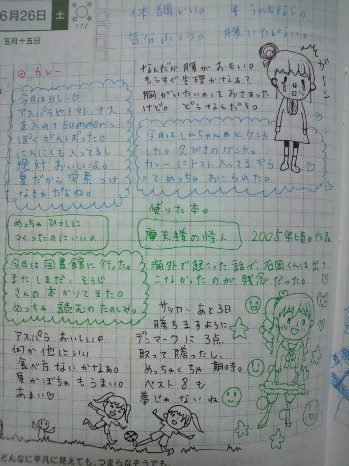 6月26日 土
五月十五日
177
体調いい。 うんちなし。
気分ふつう。 腹いたはない。
カレー
なんだか腰がおもい。
もうすぐ生理かなぁ?
胸がいたいのっておさまった
けど。 どうなんだろ。
ガーン
今日はカレー♡
アスパラやトマト、ナス
を入れてsummerっ
ぽくがんばった。
にんにくも入ってるし
絶対おいしいよ。
夏だから栄養つけ
なきゃだなね。
今日はしいちゃんめとケンカ
した。久びさのケンカ。
カレーにトマト入ってるから
ってめっちゃおこられた。
めっちゃひっしに
つくったのにいい。
借りた本。
摩天楼の怪人
2005年頃の作品
今日は図書館に行った。
またしまだ そうじ
さんの本かりてきた
めっちゃ読むのたのしみ。
海外で起こった話で、石岡くんは出て
こなかったのが残念だった。
アスパラおいしい。
何か他にいい
食べ方ないかなぁ。
夏かぼちゃもうまい。
あまい♡
サッカーあと3日
勝ちますように
デンマークに3点
取って勝ったし、
めっちゃくちゃ期待。
ベスト8も
夢じゃないね
どんなに平凡に見えても、つまらなそうでも、